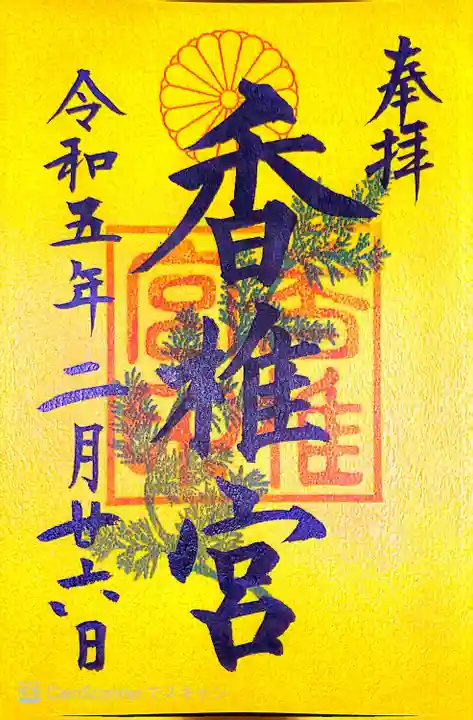 奉拝
香椎宮
令和五年二月廿六日
CamScanner でスキャン